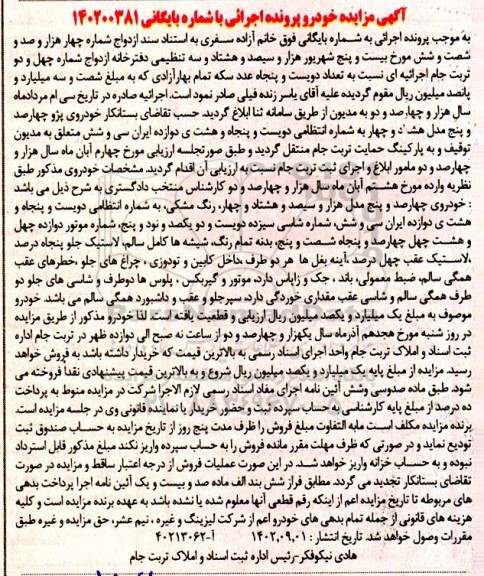 آگهی مزایده خودرو پرونده اجرائی با شماره بایگانی ۱۴۰۲۰۰۳۸۱
به موجب پرونده اجرائی به شماره بایگانی فوق خانم آزاده سفری به استناد سند ازدواج شماره چهار هزار و صد و
شصت و شش مورخ بیست و پنج شهریور هزار و سیصد و هشتاد و سه تنظیمی دفترخانه ازدواج شماره چهل و دو
تربت جام اجرائیه ای نسبت به تعداد دویست و پنجاه عدد سکه تمام بهارآزادی که به مبلغ شصت و سه میلیارد و
پانصد میلیون ریال مقوم گردیده علیه آقای یاسر زنده فیلی صادر نموده است. اجرائیه صادره در تاریخ سی ام مردادماه
سال هزار و چهارصد و دو به مدیون از طریق سامانه ثنا ابلاغ گردید. حسب تقاضای بستانکار خودروی پژو چهارصد
و پنج مدل هشتاد و چهار به شماره انتظامی دویست و پنجاه و هشت ی دوازده ایران سی و شش متعلق به مدیون
توقیف و به پارکینگ حمایت تربت جام منتقل گردید و طبق صورتجلسه ارزیابی مورخ چهارم آبان ماه سال هزار و
چهارصد و دو مامور ابلاغ و اجرای ثبت تربت جام نسبت به ارزیابی آن اقدام گردید. مشخصات خودروی مذکور طبق
نظریه وارده مورخ هشتم آبان ماه سال هزار و چهارصد و دو کارشناس منتخب دادگستری به شرح ذیل می باشد
: خودروی چهارصد و پنج مدل هزار و سیصد و هشتاد و چهار، رنگ مشکی، به شماره انتظامی دویست و پنجاه و
هشت ی دوازده ایران سی و شش، شماره شاسی سیزده دویست و دو یکصد و نود و پنج، شماره موتور دوازده چهل
و هشت چهل چهارصد و پنجاه شصت و پنج، بدنه تمام رنگ، شیشه ها کامل سالم، لاستیک جلو پنجاه درصد
،لاستیک عقب چهل درصد ،آینه بغل ها هر دو طرف ،داخل کابین و تودوزی ، چراغ های جلو ،خطرهای عقب
همگی سالم، ضبط معمولی، باند ، جک و زاپاس دارد، موتور و گیربکس ، پلوس ها دوطرف و شاسی های جلو دو
طرف همگی سالم و شاسی عقب مقداری خوردگی دارد، سپرجلو و عقب و داشبورد همگی سالم می باشد. خودرو
موصوف به مبلغ یک میلیارد و یکصد میلیون ریال ارزیابی و قطعیت یافته است. لذا خودرو مذکور از طریق مزایده
در روز شنبه مورخ هجدهم آذرماه سال یکهزار و چهارصد و دو از ساعت نه صبح الی دوازده ظهر در تربت جام اداره
ثبت اسناد و املاک تربت جام واحد اجرای اسناد رسمی به بالاترین قیمت که خریدار داشته باشد به فروش خواهد
رسید. مزایده از مبلغ پایه یک میلیارد و یکصد میلیون ریال شروع و به بالاترین قیمت پیشنهادی نقدا فروخته می
شود. طبق ماده صدوسی وشش آئین نامه اجرای مفاد اسناد رسمی لازم الاجرا شرکت در مزایده منوط به پرداخت
ده درصد از مبلغ پایه کارشناسی به حساب سپرده ثبت و حضور خریدار یا نماینده قانونی وی در جلسه مزایده است.
برنده مزایده مکلف است مابه التفاوت مبلغ فروش را ظرف مدت پنج روز از تاریخ مزایده به حساب صندوق ثبت
تودیع نماید و در صورتی که ظرف مهلت مقرر مانده فروش را به حساب سپرده واریز نکند مبلغ مذکور قابل استرداد
نبوده و به حساب خزانه واریز خواهد شد. در این صورت عملیات فروش از درجه اعتبار ساقط و مزایده در صورت
تقاضای بستانکار تجدید می گردد. مطابق فراز شش بند الف ماده صد و بیست و یک آئین نامه اجرا پرداخت بدهی
های مربوطه تا تاریخ مزایده اعم از اینکه رقم قطعی آنها معلوم شده یا نشده باشد به عهده برنده مزایده است و کلیه
هزینه های قانونی از جمله تمام بدهی های خودرو اعم از شرکت لیزینگ و غیره ، نیم عشر، حق مزایده و غیره طبق
مقررات وصول خواهد شد. تاریخ انتشار : ۱۴۰۲،۰۹،۰۱ آ-۴۰۲۱۳۰۶۲
هادی نیکوفکر-رئیس اداره ثبت اسناد و املاک تربت جام